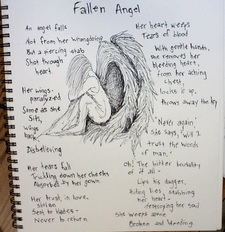 Fallen Angel
An angel falls
Not from her wrongdoing
But a piercing stab
Shot through
heart
Her wings
paralyzed
Some as she
sits,
wings
back
Disbelieving
Her tears fall
Trickling down her cheeks
Absorbed by her gown
Her trust, in love,
stolen
Sent to Hades-
Never to return
Her heart weeps
Tears of blood
With gentle hands,
she removes her
bleeding heart,
from her aching
chest,
locks it up,
throws away the key
"Never again"
she says, "will I
trust the words
of man."
Oh! The bitter brutality
of it all -
Lips his dagger,
Biting lies, stabbing
her heart,
destroying her soul
She weeps alone
Broken and bleeding